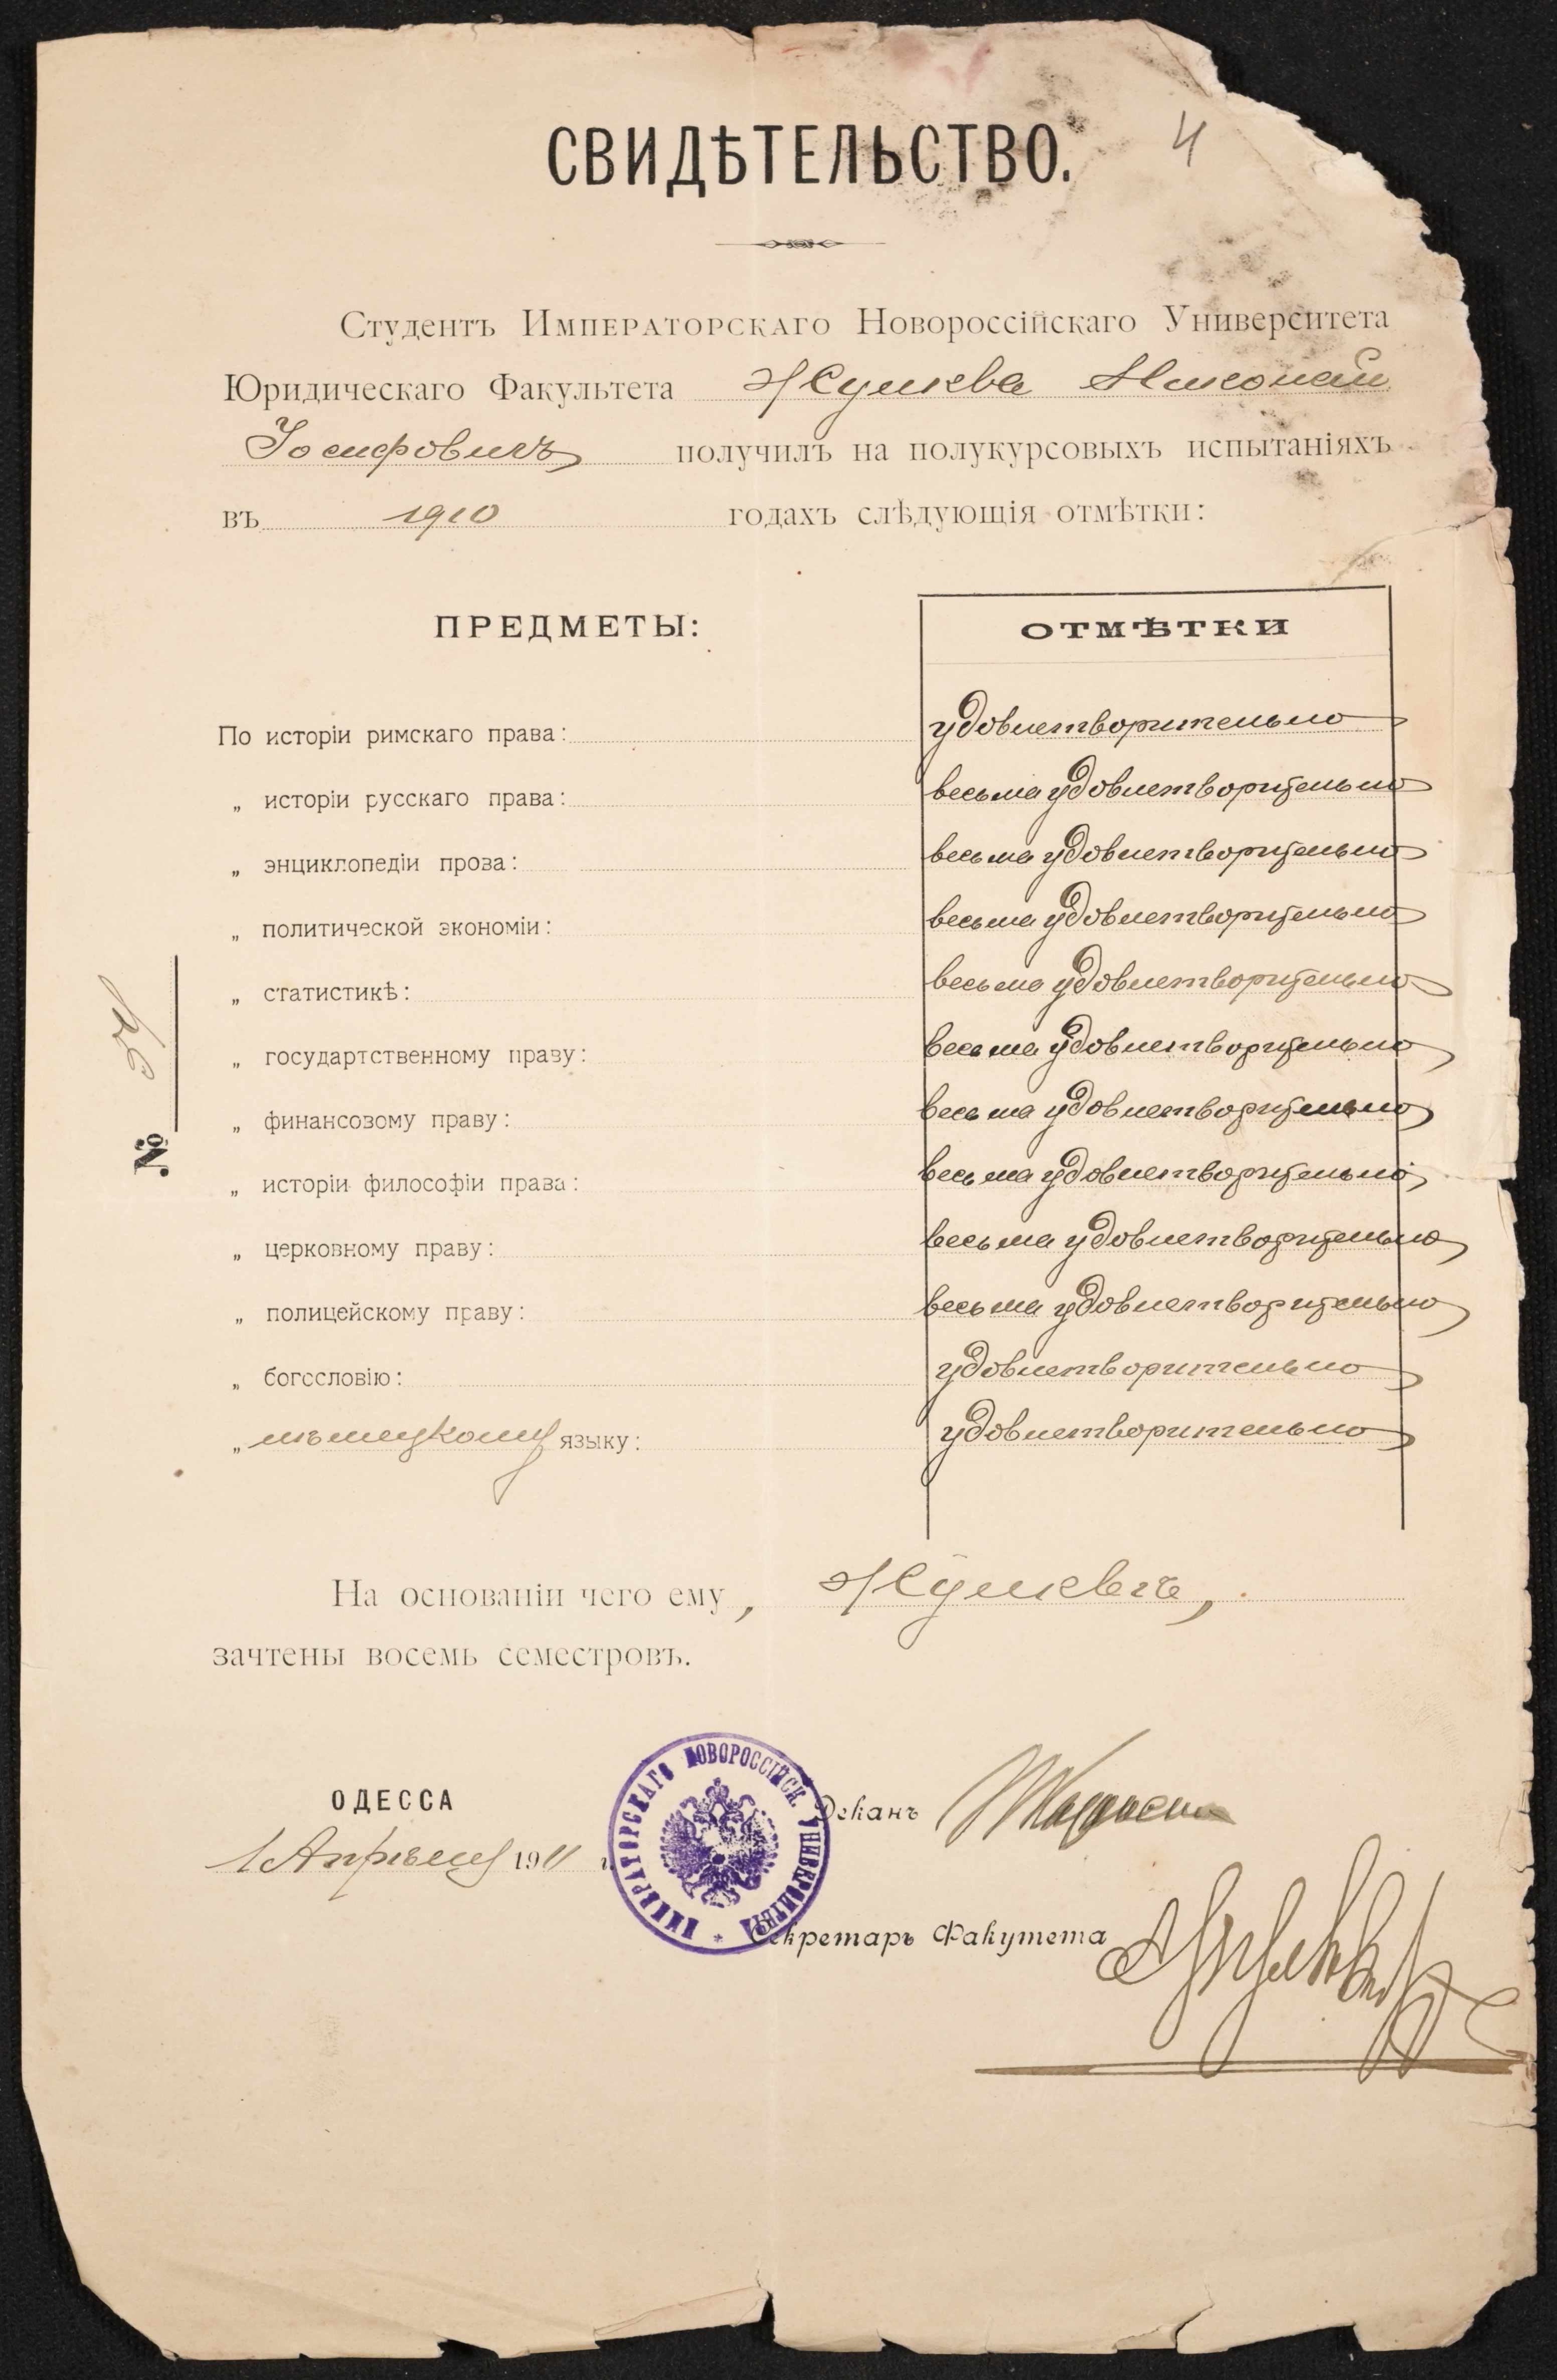 4
СВИДѢТЕЛЬСТВО.
Студентъ Императорскаго Новороссійскаго Университета
Юридическаго Факультета Жушква Николай
Іосифовичъ получилъ на полукурсовыхъ испытаніяхъ
въ 1910 годахъ слѣдующія отмѣтки:
ПРЕДМЕТЫ: ОТМѢТКИ
По исторіи римскаго права: удовлетворительно
„ исторіи русскаго права: весьма удовлетворительно
„ энциклопедіи проза: весьма удовлетворительно
„ политической экономіи: весьма удовлетворительно
„ статистикѣ: весьма удовлетворительно
„ государтственному праву: весьма удовлетворительно
„ финансозому праву: весьма удовлетворительно
„ исторіи философіи права: весьма удовлетворительно
„ церковному праву: весьма удовлетворительно
„ полицейскому праву: весьма удовлетворительно
„ богословію: удовлетворительно
„ нѣмецкому языку: удовлетворительно
№ 34
На основаніи чего ему, Жушквѣ,
зачтены восемь семестровъ.
ИМПЕРАТОРСКАГО НОВОРОССІЙСК. УНИВЕРСИТЕТА *
ОДЕССА
1 Апрѣля 1911 г.
Деканъ
Секретарь Факутета